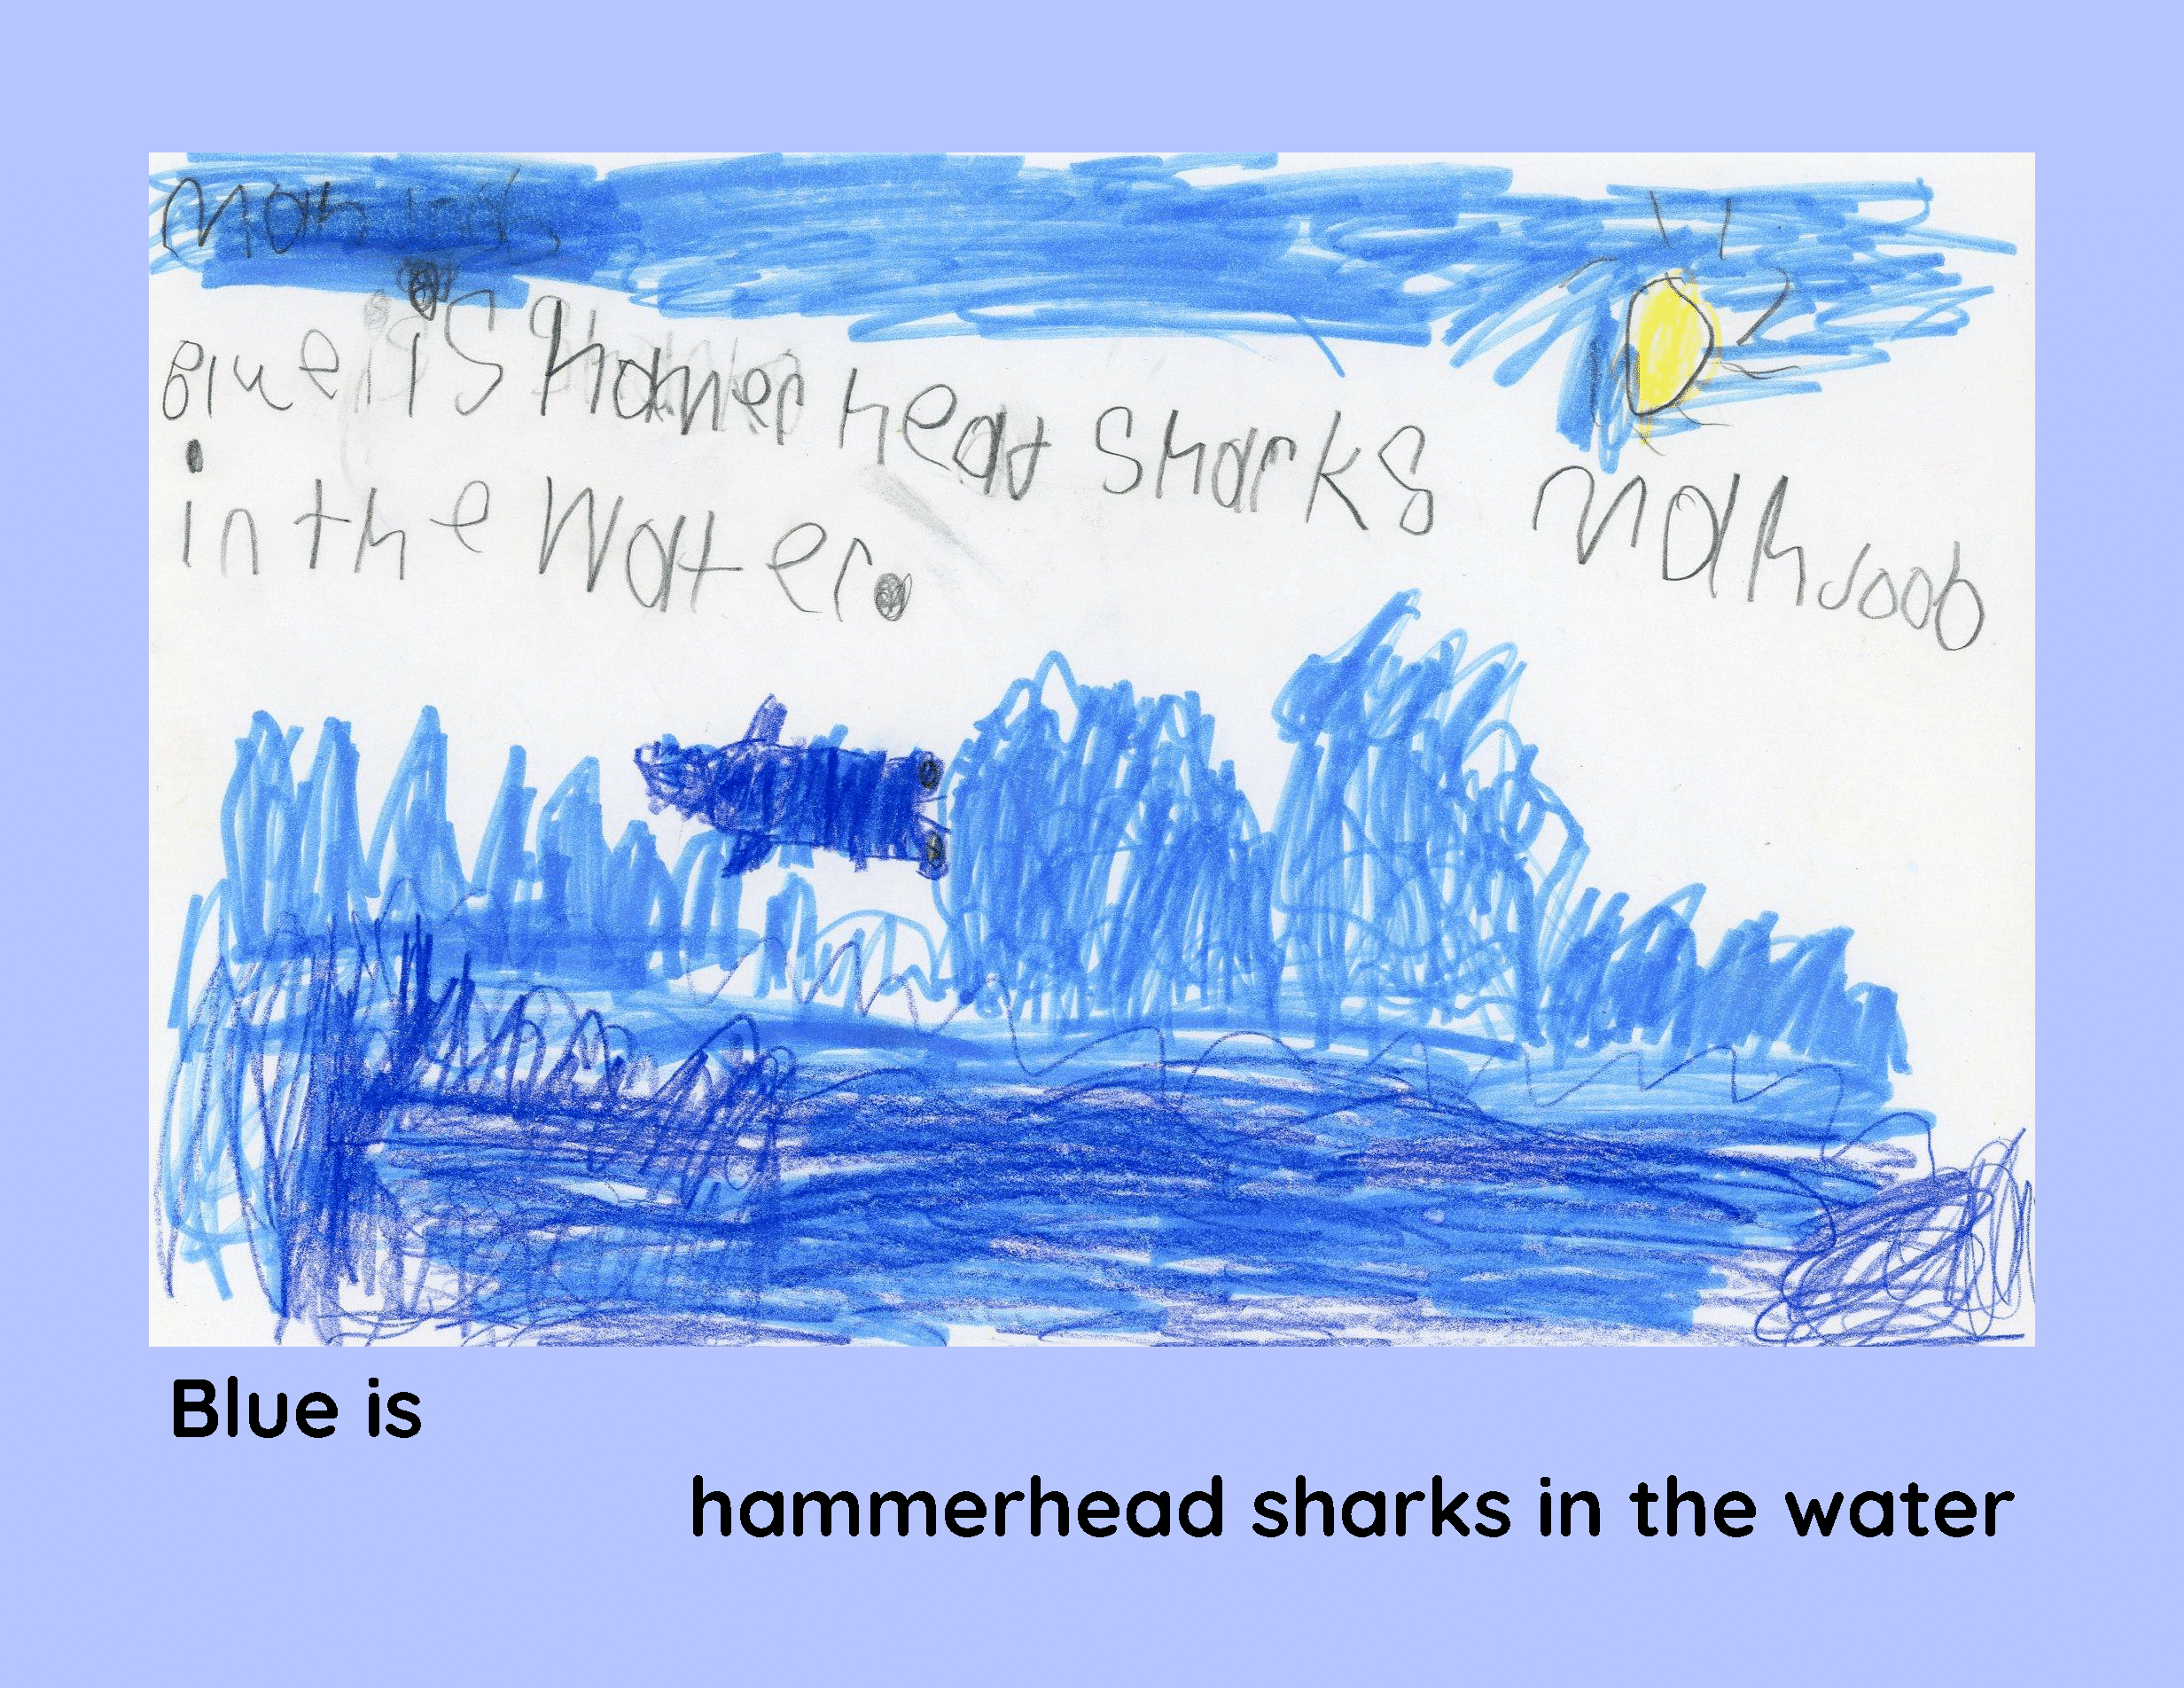 Blue is Hamer head sharks
in the Water.
Mahjoob
Blue is
hammerhead sharks in the water